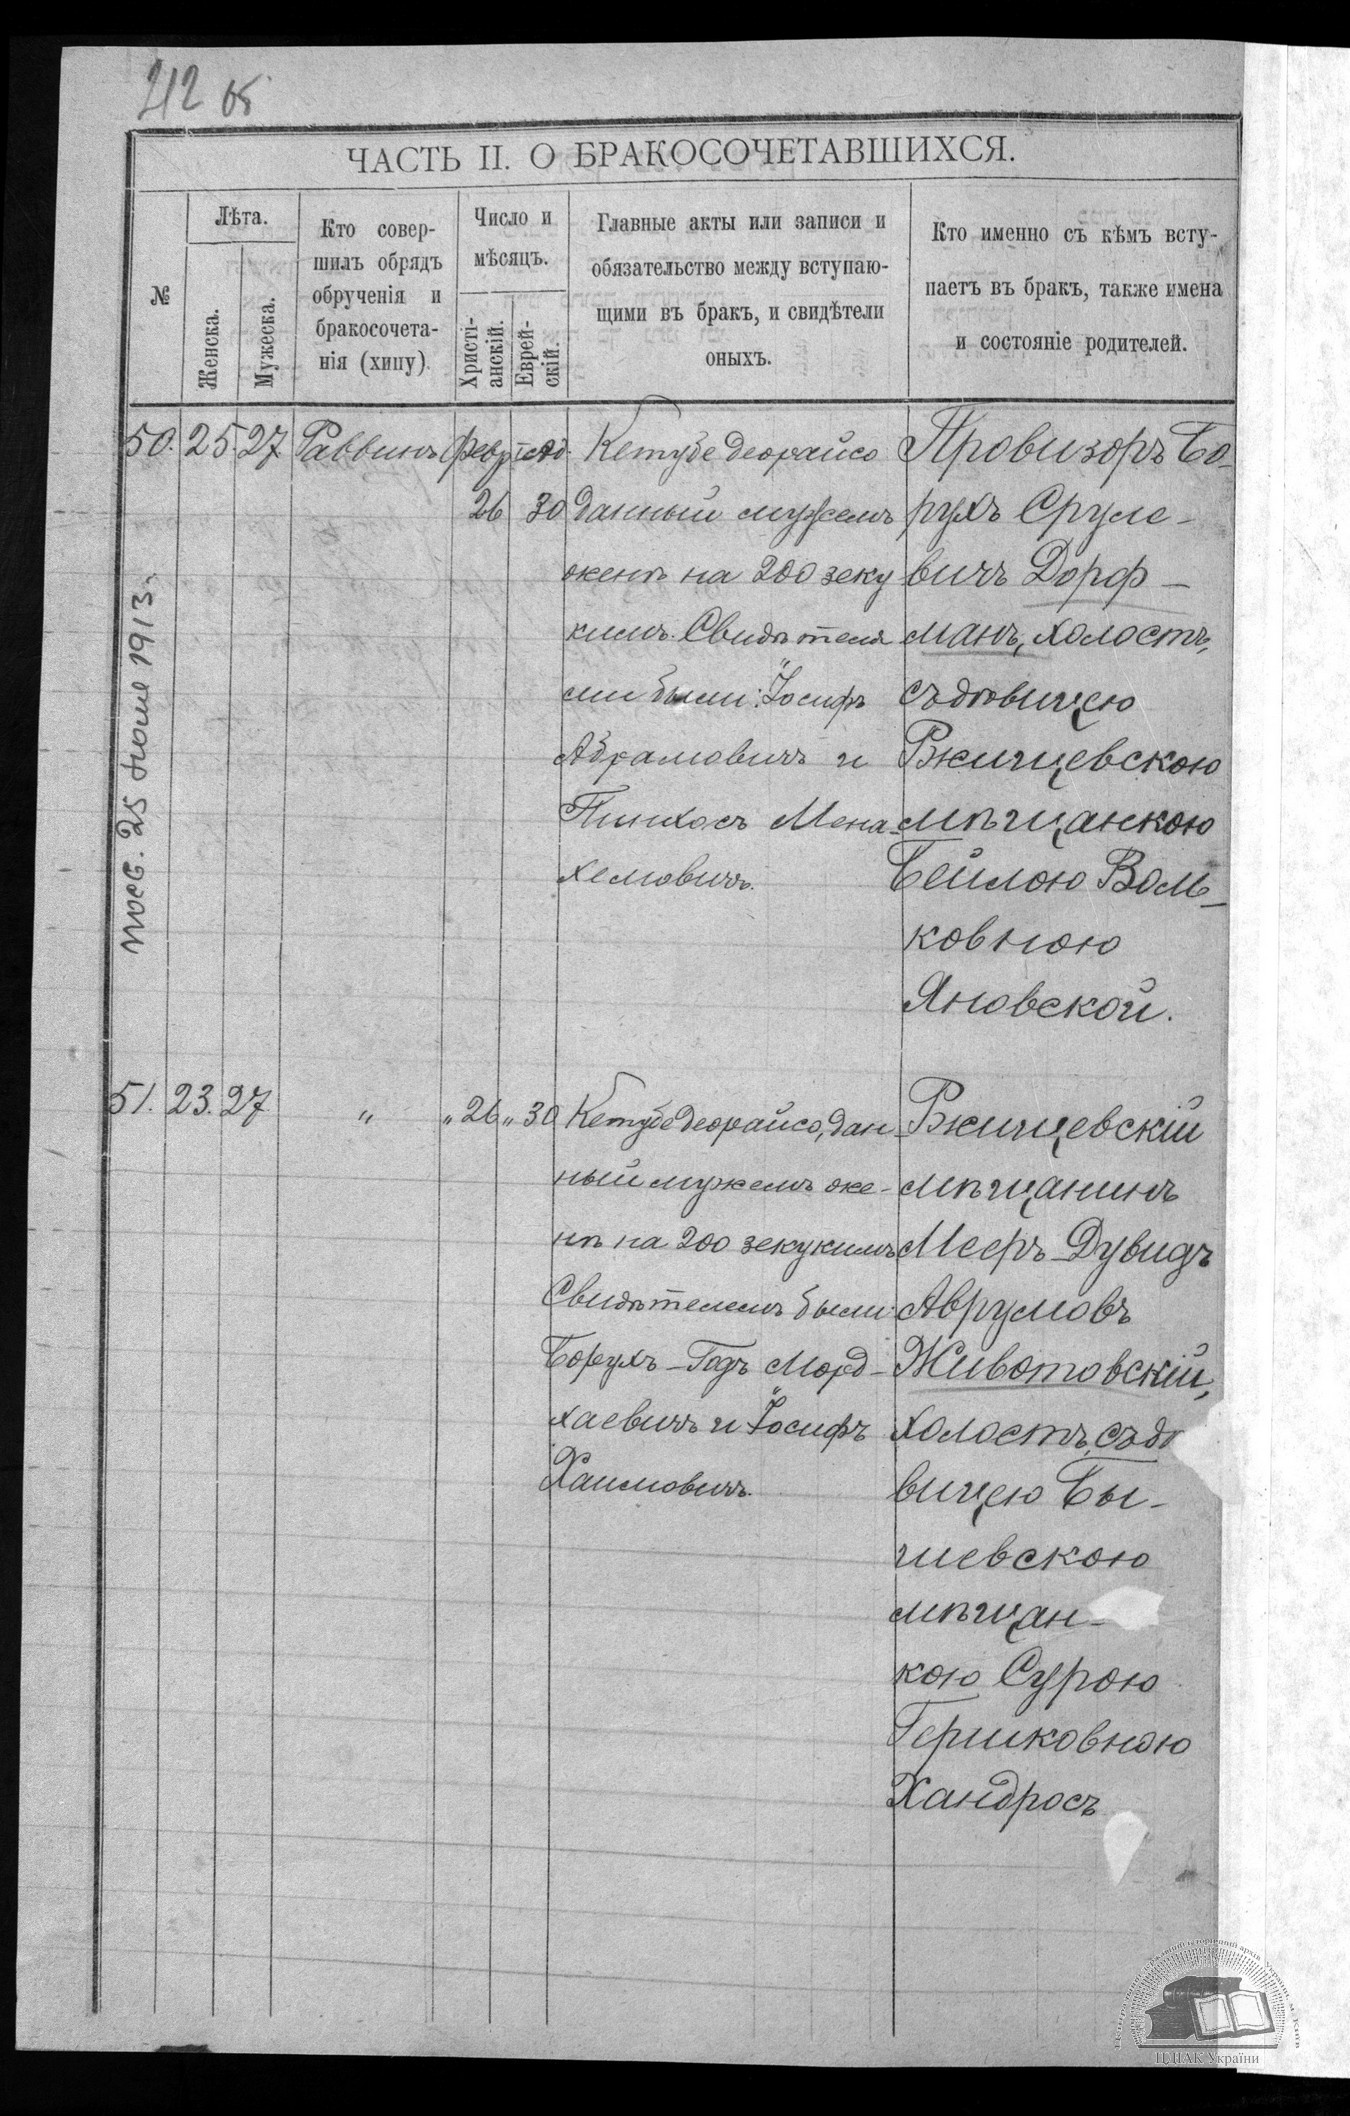 212 об
ЧАСТЬ II. О БРАКОСОЧЕТАВШИХСЯ.
№
Лѣта.
Женска.
Мужеска.
Кто совер-
шилъ обрядъ
обрученія и
бракосочета-
нія (хипу)
Число и
мѣсяцъ.
Христі-
анскій.
Еврей-
скій.
Главные акты или записи и
обязательство между вступаю-
щими въ бракъ, и свидѣтели
оныхъ.
Кто именно съ кѣмъ всту-
паетъ въ бракъ, также имена
и состояніе родителей.
50. 25. 27. Раввинъ Февр
26 30
Кетубе деорайсо
данный мужемъ
женѣ на 200 зеку
кимъ. Свидѣтеля
ми были: Іосифъ
Абрамовичъ и
Пинхосъ Мена-
хемовичъ.
Провизоръ Бо-
рухъ Сруле-
вичъ Дорф-
манъ, холостъ,
съ дѣвицею
Ржищевскою
мѣщанкою
Бейлою Воль-
ковною
Яновской.
25 1913 г.
51. 23. 27 " " 26 " 30
Кетубе деорайсо, дан-
ный мужемъ же-
нѣ на 200 зекукимъ
Свидѣтелемъ были:
Борухъ-Годъ Морд-
хаевичъ и Іосифъ
Хаимовичъ.
Ржищевскій
мѣщанинъ
Мееръ-Дувидъ
Аврумовъ
Животовскій,
холостъ, съ дѣ
вицею Бы-
шевскою
мѣщан-
кою Сурою
Гершковною
Хандросъ
ЦДІАК України